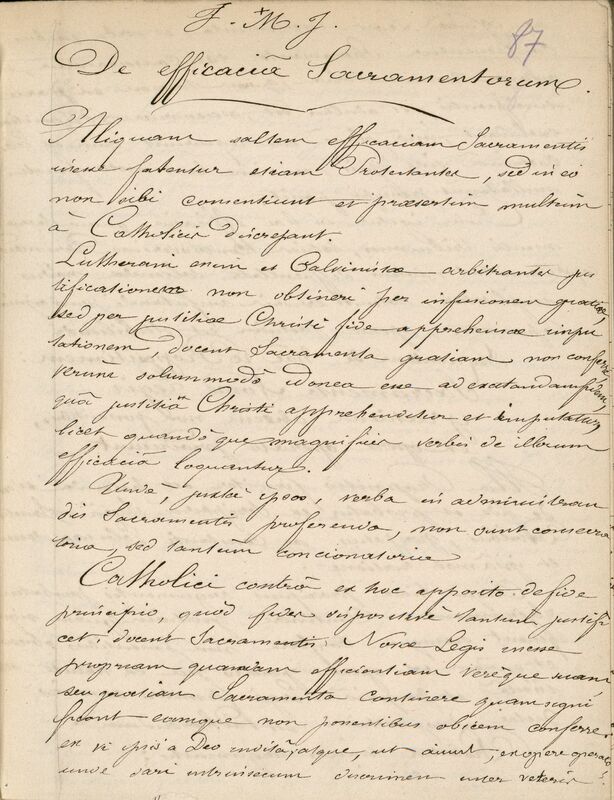 J. M. J.
87
De efficaciâ Sacramentorum.
Aliquam saltem efficaciam Sacramentis
inesse fatentur etiam Protestantes, sed in eo
non sibi consentiunt et præsertim multum
à Catholicis discrepant.
Lutherani enim et Calvinistæ arbitrantes jus
tificationem non obtineri per infusionem gratiæ,
sed per justitiæ Christi fide apprehensæ impu
tationem, docent Sacramenta gratiam non conferre
verùm solummodò idonea esse ad excitandam fidem,
quâ justitia Christi apprehenditur et imputatur,
licet quandòque magnificis verbis de illorum
efficaciâ loquantur.
Undè, juxtà ipsos, verba in administran
dis Sacramentis proferenda, non sunt consecra
toria, sed tantùm concionatoria
Catholici contrà ex hoc apposito de fide
principio, quòd fides dispositivè tantùm justifi
cet, docent Sacramentis Novæ Legis inesse
propriam quamdam efficientiam verèque suam,
seu gratiam Sacramenta continere quam signi
ficant eamque non ponentibus obicem conferre
ex vi ipsis a Deo inditâ, atque, ut aiunt, ex opere operato
unde dari intrinsecum discrimen inter veteris